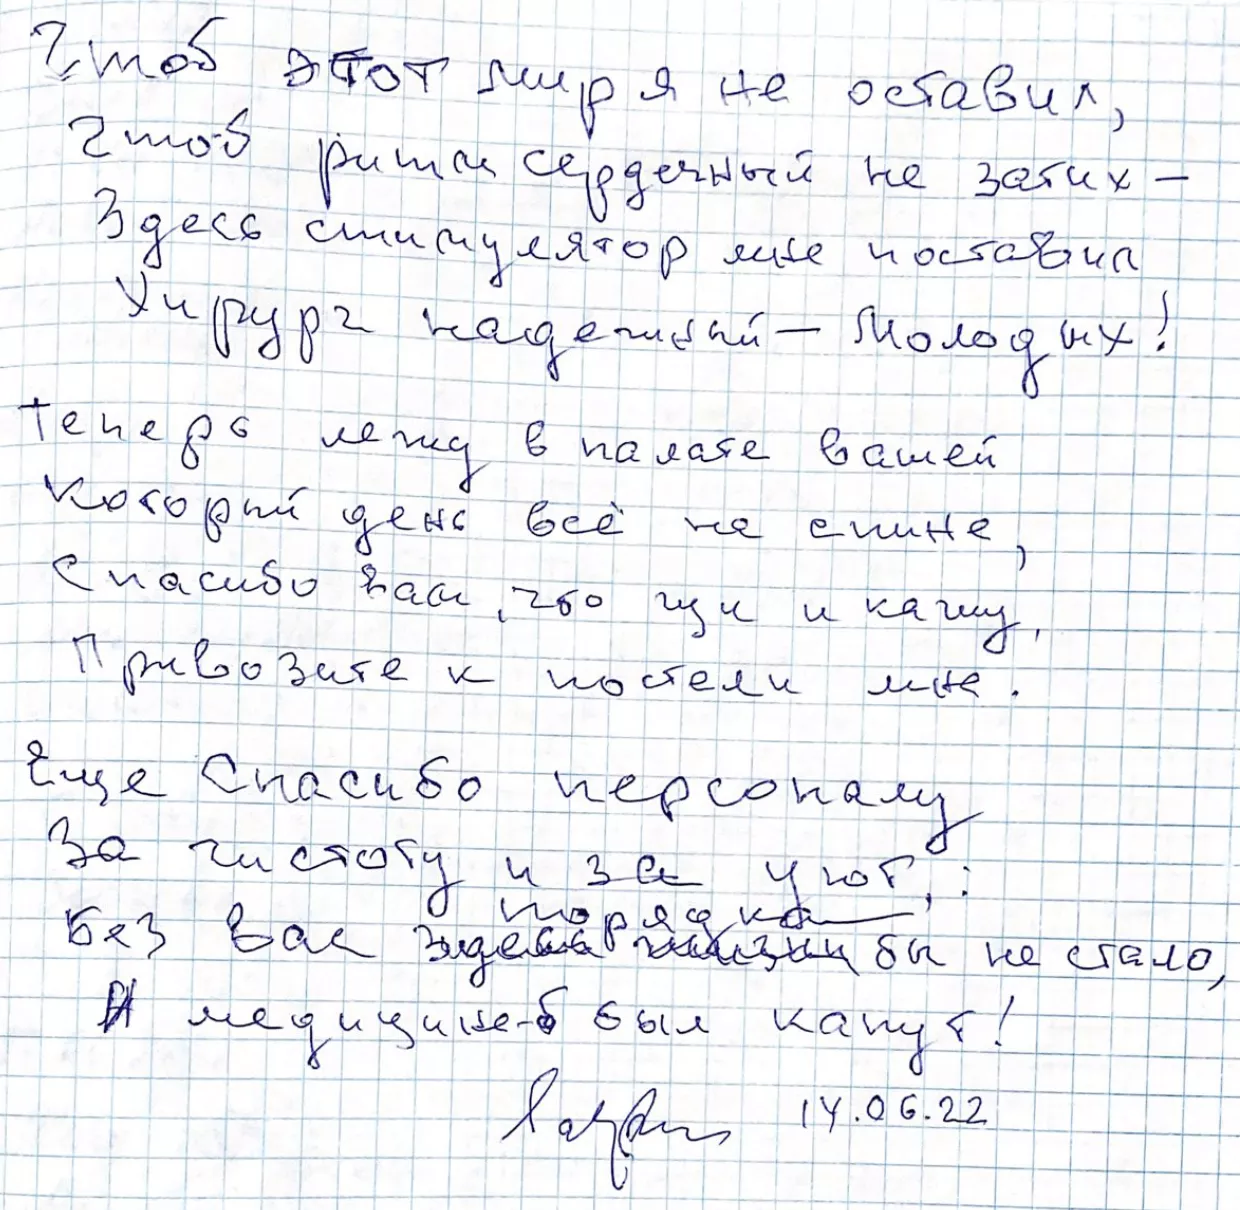 Чтоб этот мир я не оставил,
Чтоб ритм сердечный не затих –
Здесь стимулятор мне поставил
Хирург надежный – Молодых!
Теперь лежу в палате вашей
Который день всё на спине,
Спасибо вам, что щи и кашу,
Привозите к постели мне.
Еще Спасибо персоналу
За чистоту и за уют, :
порядка
Без вас бы не стало,
И медицине-б был капут!
14.06.22